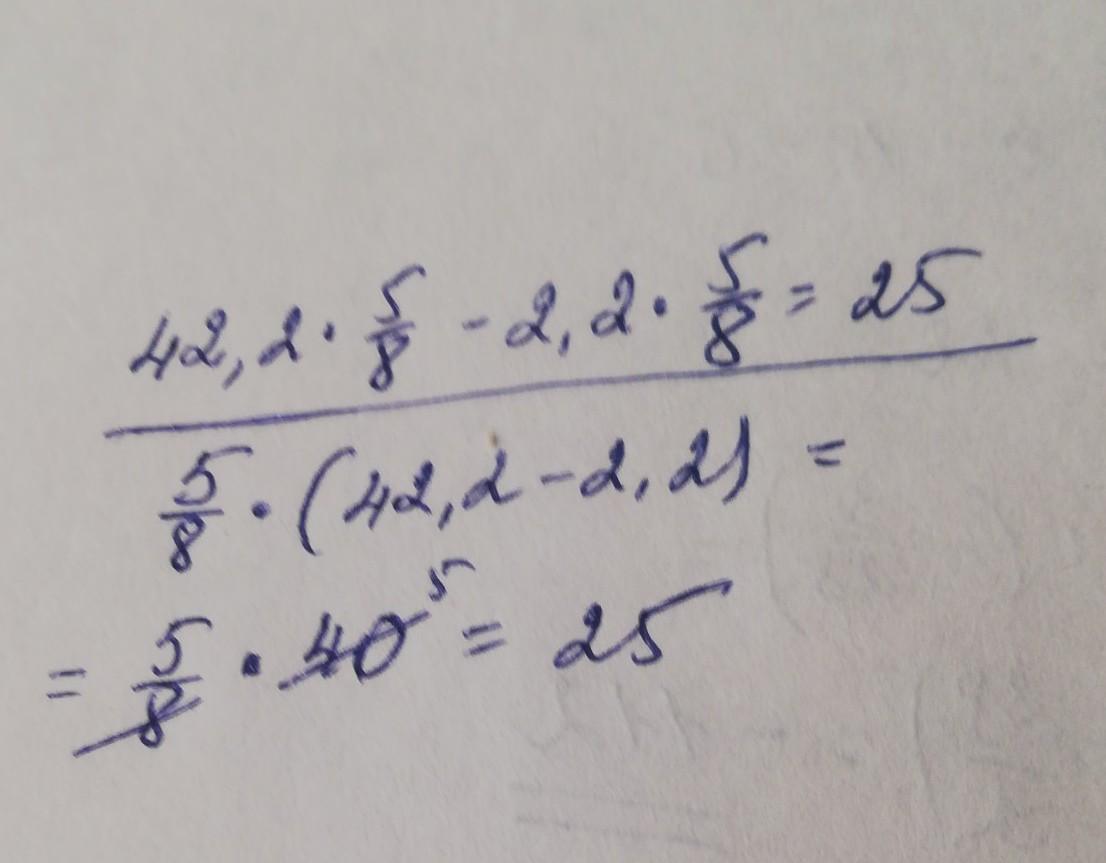 42,2 · 5/8 - 2,2 · 5/8 = 25
5/8 · (42,2 - 2,2) =
= 5/8 · 40 5 = 25